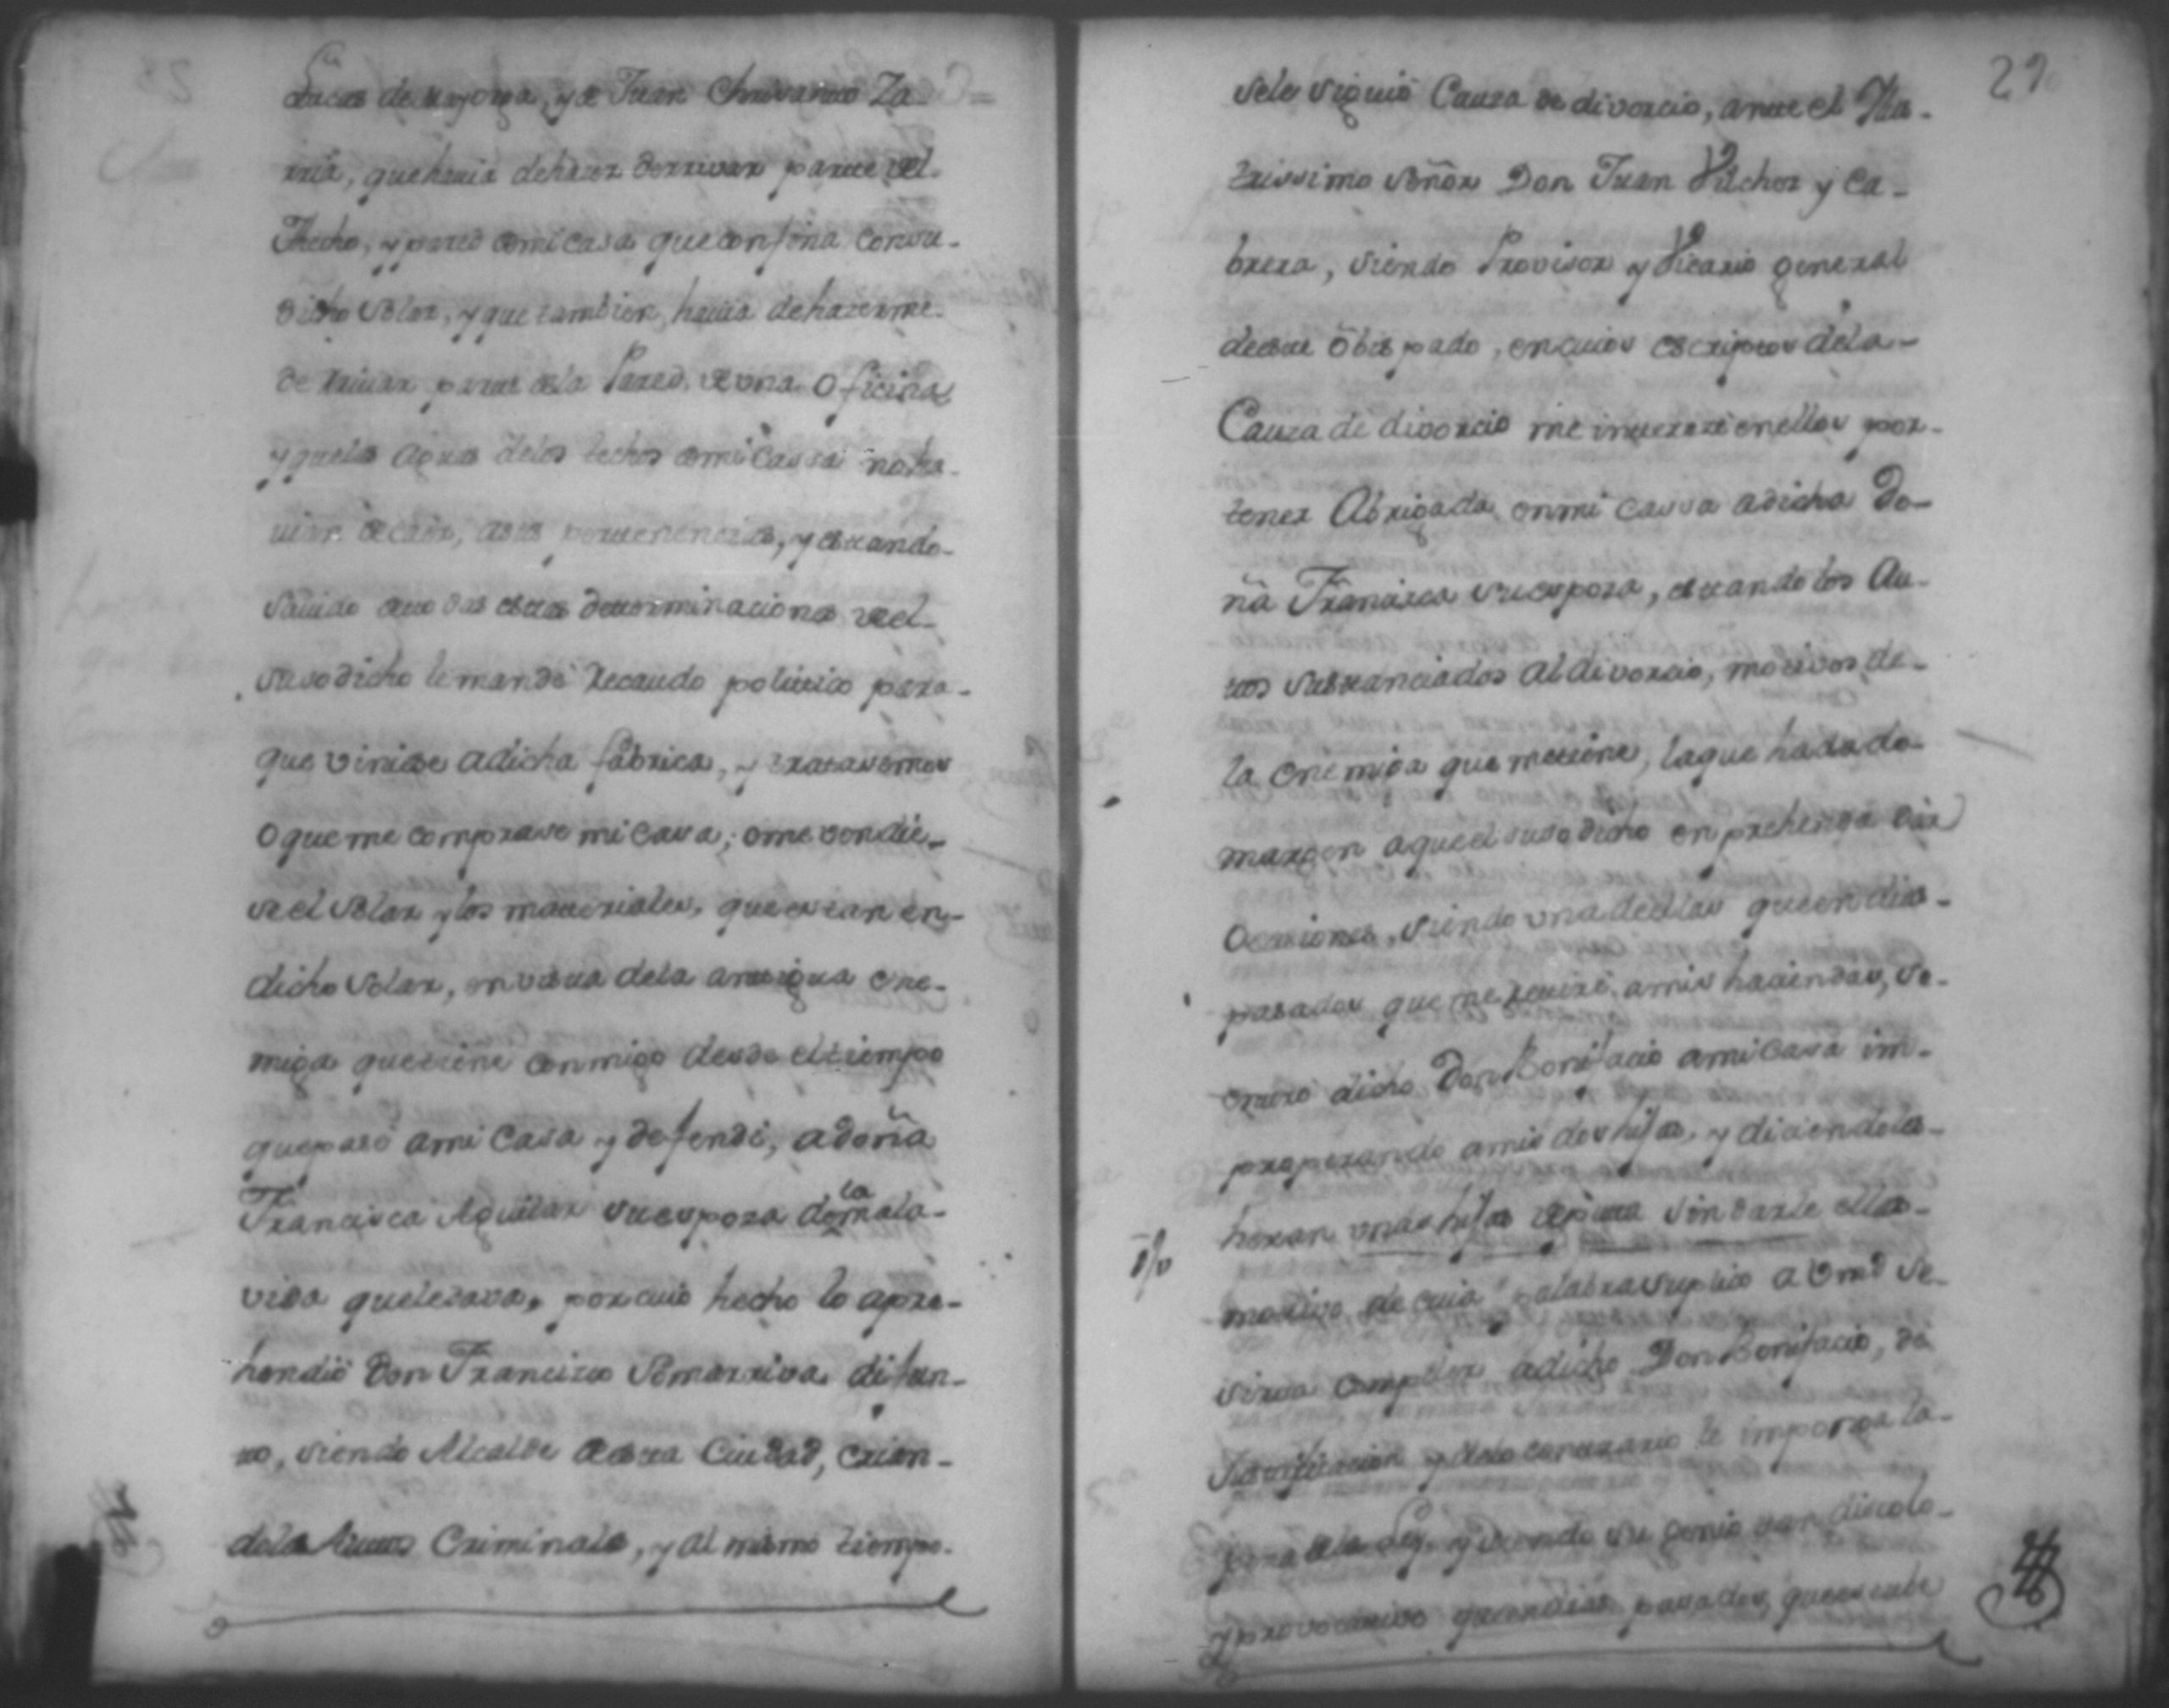 Lucas de mayorga, y de Juan Chrisanto Za-
rria, que hauia de hazer derrivar parte del
Thecho, y pared de mi casa que confina con su
dicho solar, y que tambien, hauia de hazerme
derriuar parte de la Pared, de una Oficina
y que las aguas de los techos de mi Cassa no ha-
uian de caer, a sus pertenencias, y estando
sauido de todas estas determinaciones del
susodicho le mandé recaudo politico para
que viniese a dicha fabrica, y tratasemos
o que me comprase mi casa; o me vendie-
se el solar y los materiales, que estan en
dicho solar, en vista de la antigua ene-
miga que tiene conmigo desde el tiempo
que pasó a mi Casa y defendi, a doña
Francisca Aguilar su espoza de la mala
vida que le dava, por cuio hecho lo apre-
hendió Don Francisco Somarriva, difun-
to, siendo Alcalde de esta Ciudad, crian-
dole Autos Criminales, y al mismo tiempo
29
se le siguió Cauza de divorcio, ante el Illu-
trissimo Señor Don Juan Vilchez y Ca-
brera, siendo Provisor y Vicario general
de este obispado, en cuios escriptos de la
Cauza de divorcio me interezé en ellos por
tener Abrigada en mi cassa a dicha Do-
ña Francisca su espoza, estando los Au-
tos substanciados al divorcio, motivos de
la enemiga que me tiene, la que ha dado
margen a que el susodicho enprehenda dar
Ocasiones, siendo una de ellas que en dias
pasados que me retiré a mis haciendas, se
entró dicho Don Bonifacio a mi Casa im-
properando a mis dos hijas, y diciendoles
heran unas hijas de puta sin darle ellas
motivo de cuia palabra suplico a Vmd se
sirva compeler a dicho Don Bonifacio, de
Justificacion y de lo contrario le imponga la
pena de la Ley, y siendo su genio tan discolo
y provocativo que en dias pasados, que estube